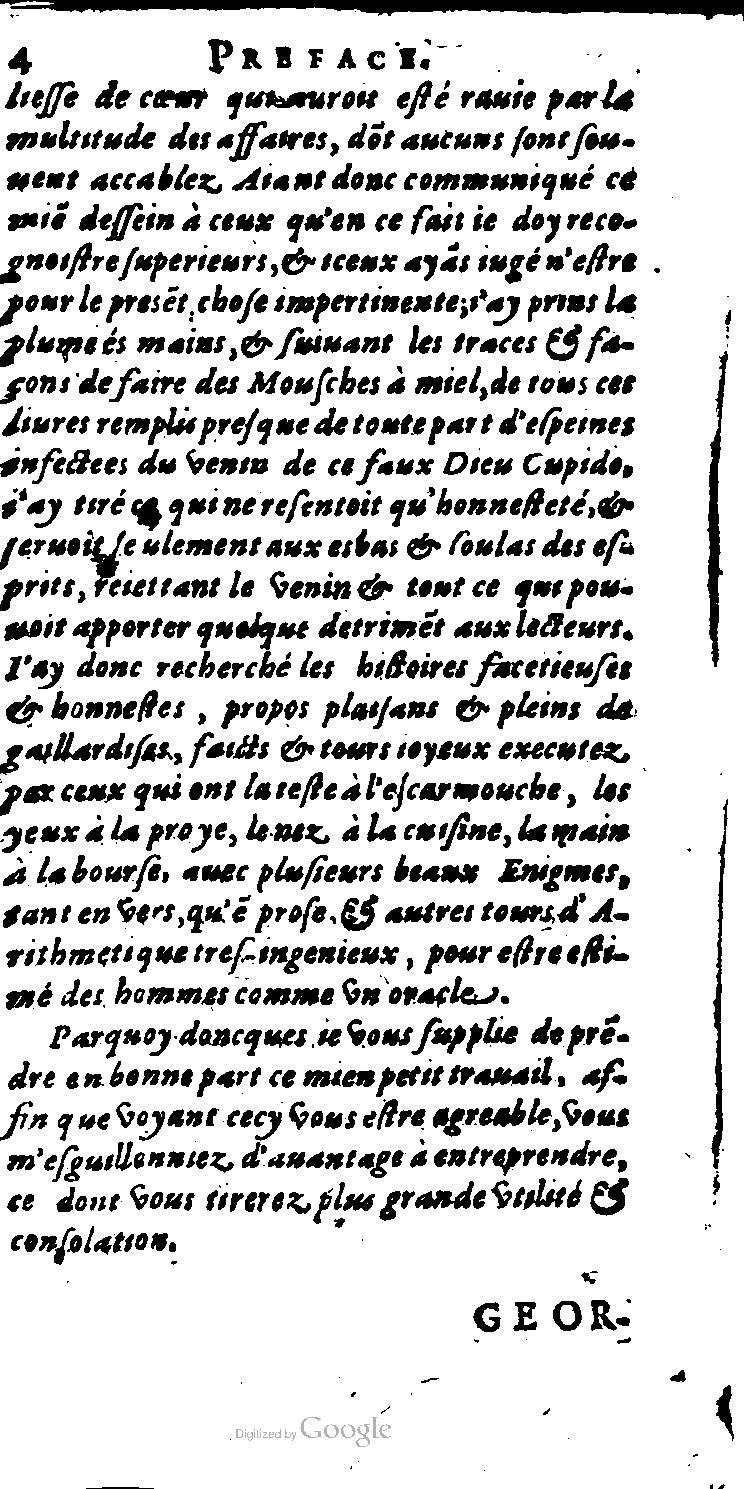 4 PREFACE.
liesse de cœur qui auroit esté rauie par la
multitude des affaires, dõt aucuns sont sou-
uent accablez. Aiant donc communiqué ce
miẽ dessein à ceux qu'en ce fait ie doy reco-
gnoistre superieurs, & iceux ayãs iugé n'estre
pour le presẽt chose impertinente; i'ay prins la
plume és mains, & suiuant les traces & fa-
çons de faire des Mousches à miel, de tous ces
liures remplis presque de toute part d'espeines
infectees du venin de ce faux Dieu Cupido,
i'ay tiré ce qui ne resentoit qu'honnesteté, &
seruoit seulement aux esbas & soulas des es-
prits, reiettant le venin & tout ce qui pou-
uoit apporter quelque detrimẽt aux lecteurs.
I'ay donc recherché les histoires facetieuses
& honnestes, propos plaisans & pleins de
gaillardises, faicts & tours ioyeux executez
par ceux qui ont la teste à l'escarmouche, les
yeux à la proye, le nez à la cuisine, la main
à la bourse, auec plusieurs beaux Enigmes,
tant en vers, qu'ẽ prose. & autres tours d'A-
rithmetique tres-ingenieux, pour estre esti-
mé des hommes comme vn oracle.
Parquoy doncques ie vous supplie de prẽ-
dre en bonne part ce mien petit trauail, af-
fin que voyant cecy vous estre agreable, vous
m'esguillonniez d'auantage à entreprendre,
ce dont vous tirerez plus grande vtilité &
consolation.
GEOR-
Digitized by Google